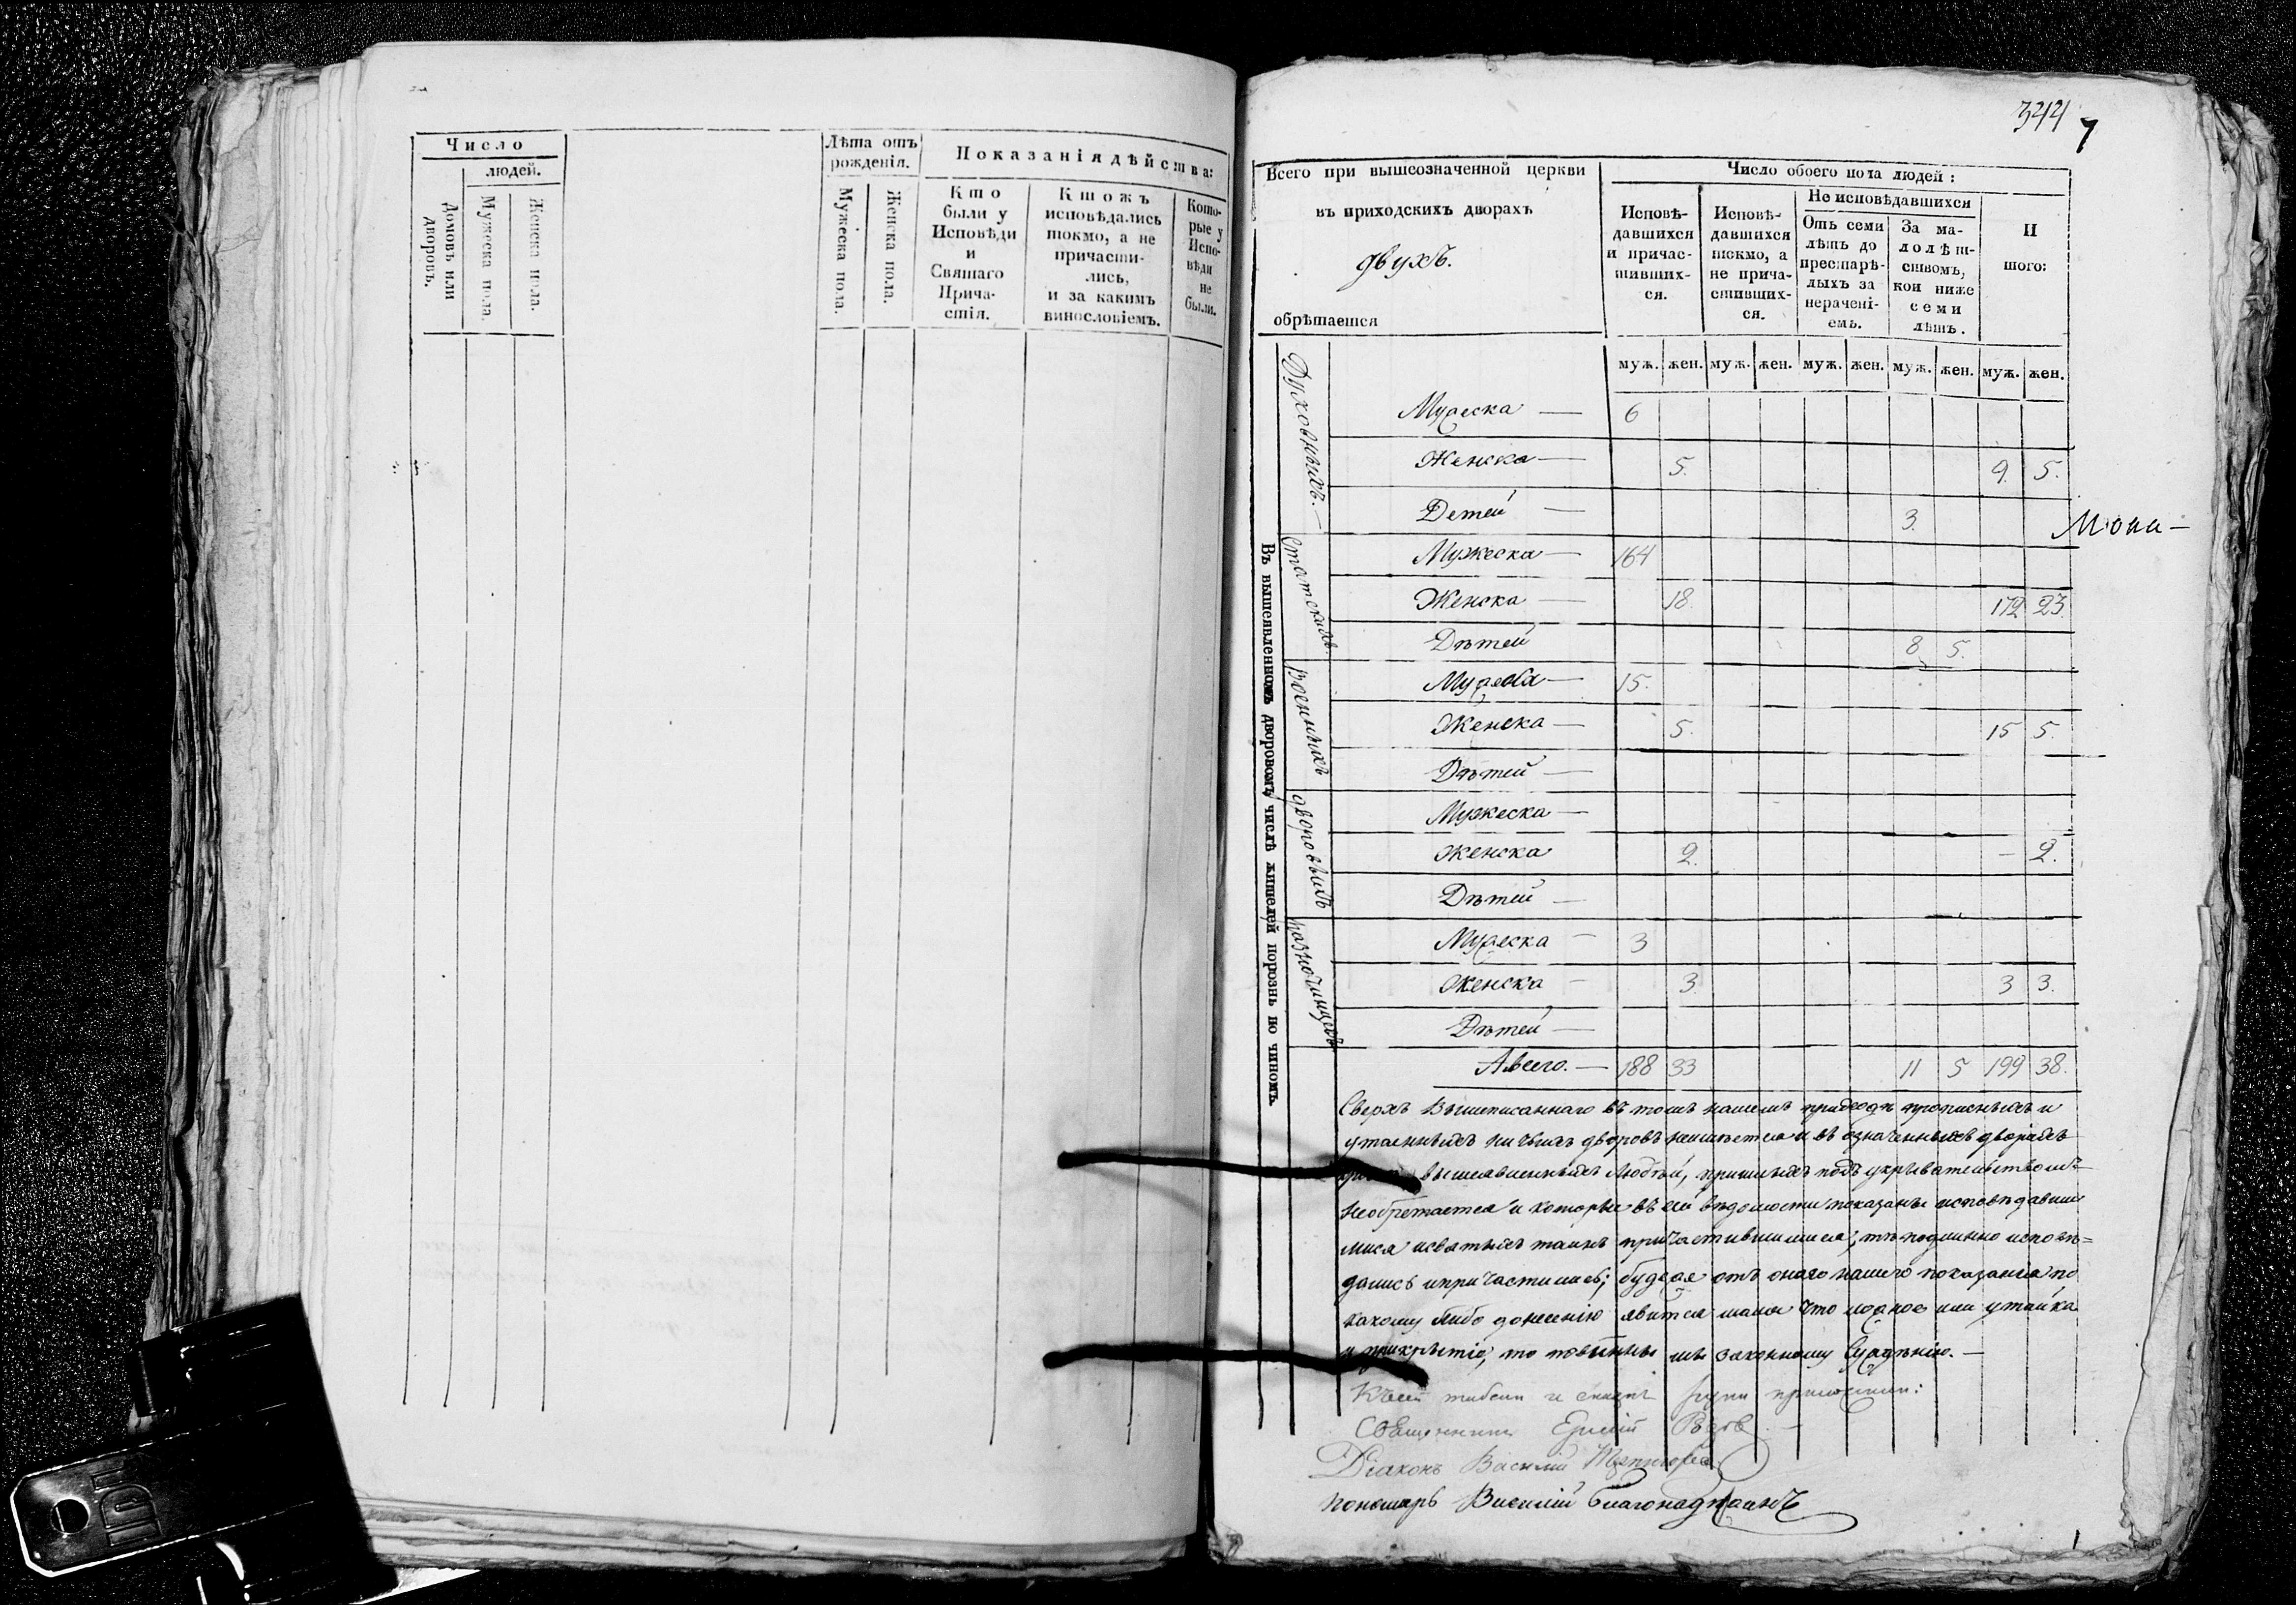 Число
людей.
Домовъ или дворовъ.
Мужеска пола.
Женска пола.
Лѣта отъ рожденія.
Мужеска пола.
Женска пола.
Показанія дѣйства:
Кто были у Исповѣди и Святаго Прича-стія.
Ктожъ исповѣдались токмо, а не причасти-лись, и за какимъ винословіемъ.
Кото-рые у Испо-вѣди не были.
344 7
Всего при вышеозначенной церкви
въ приходскихъ дворахъ
двухъ.
обрѣтается
Число обоего пола людей:
Исповѣ-давшихся и причас-тивших-ся.
Исповѣ-давшихся токмо, а не прича-стивших-ся.
Не исповѣдавшихся
Отъ семи лѣтъ до престарѣ-лыхъ за нерачені-емъ.
За ма-лолѣт-ствомъ, кои ниже семи лѣтъ.
И
того:
муж. жен. муж. жен. муж. жен. муж. жен. муж. жен.
Въ вышеявленномъ дворовомъ числѣ жителей порознь по чиномъ.
Духовныхъ.—
Мужеска — 6
Женска — 5. 9. 5.
Детей — 3.
Мона—
Статскихъ.
Мужеска — 164
Женска — 18. 172 23.
Дѣтей 8 5.
Военныхъ
Мужеска — 15.
Женска — 5. 15 5.
Дѣтей —
дворовыхъ
Мужеска —
Женска 2. — 2.
Дѣтей —
разночинцевъ
Мужеска — 3
Женска — 3. 3 3.
Дѣтей —
Авсего. — 188 33 11 5 199 38.
Сверхъ вышеписаннаго въ томъ нашемъ приходѣ прописныхъ и
утаенныхъ ничьихъ дворовъ неимѣется и въ означенныхъ дворахъ
вышеявленныхъ людей, пришлыхъ подъ укрывательствомъ
необретается и которые въ сей вѣдомости показаны исповѣдавши
мися исвятыхъ таинъ причастившимися, тѣ подлинно исповѣ=
дались ипричастились; будеже отъ онаго нашего показанія по
какому либо донесенію явится мама что ложное или утайка
и прикрытіе, то повинны мы законному сужденію.—
Къ сей руки приложили:
Священникъ
Діаконъ Василій
Пономарь Василій Благонадѣжинъ